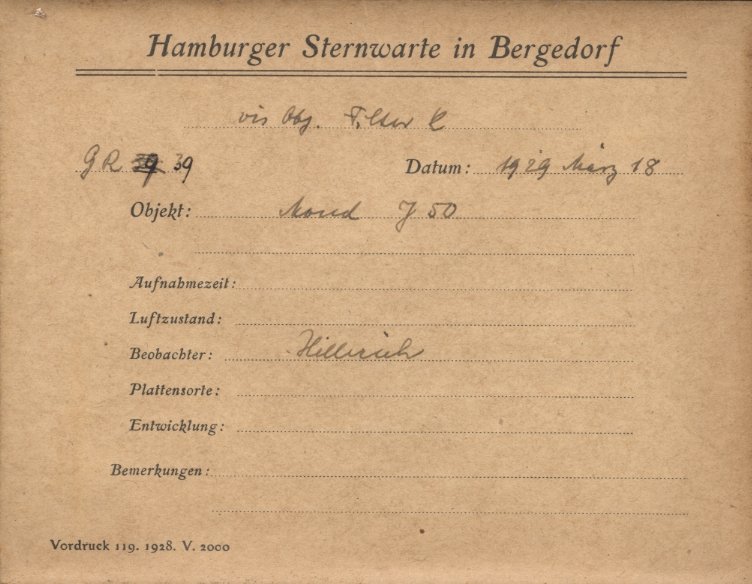 Hamburger Sternwarte in Bergedorf
vis Obj. Filter
GR 39 Datum: 1929 März 18
Objekt: Mond J 50
Aufnahmezeit:
Luftzustand:
Beobachter:
Plattensorte:
Entwicklung:
Bemerkungen:
Vordruck 119. 1928. V. 2000